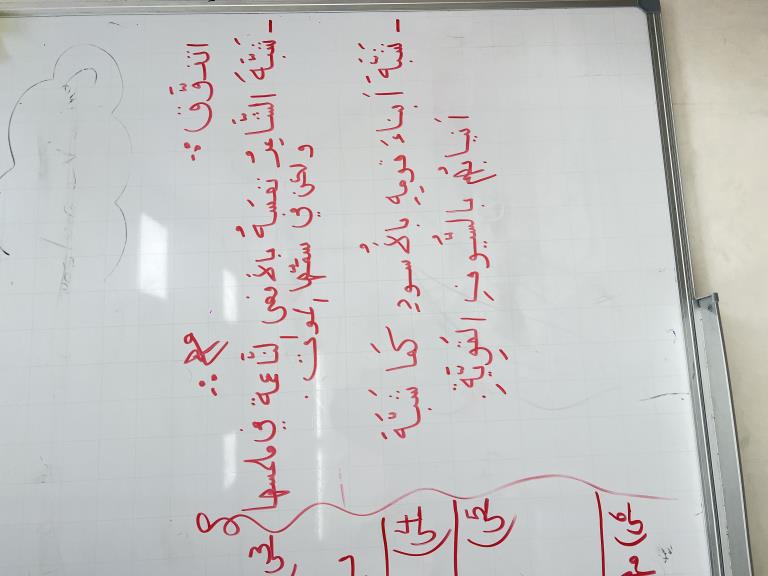 التذوّق :
- شَبَّهَ الشَّاعِرُ نَفسَهُ بالأفعى لنَّاعمة في ملمسها
ولكن في سمّها الموات .
- شَبَّهَ أبناءَ قومِهِ بالأُسُودِ كَمَا شَبَّهَ
أنيابَهُم بالسُّيوفِ القَويَّةِ .
س٣
س٤
س٥
س٦